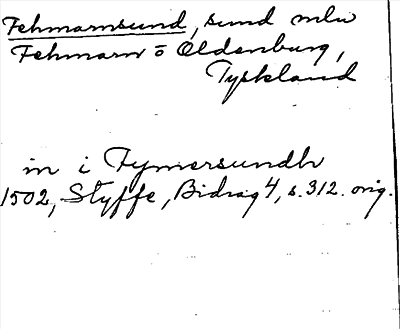 Fehmarnsund, sund mln
Fehmarn o Oldenburg,
Tyskland
in i Fymersundh
1502, Styffe, Bidrag 4, s. 312. orig.